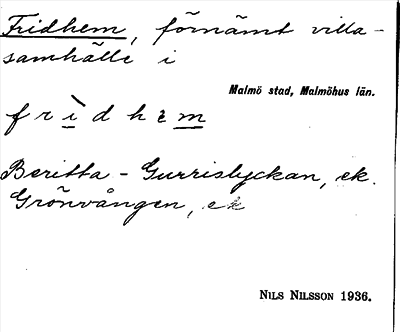 Fridhem, förnämt villa-
samhälle i
Malmö stad, Malmöhus län.
frìdhɛm
Beritta - Gurrislyckan, ek.
Grönvången, ek
NILS NILSSON 1936.